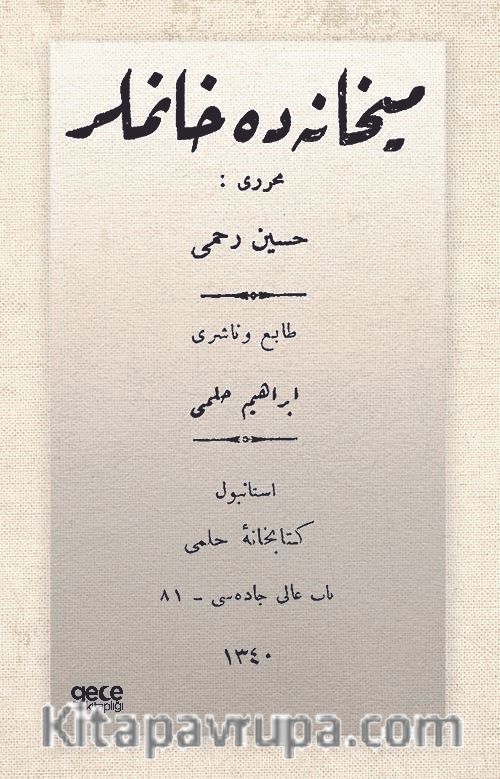 میخانه‌ده خانملر
محرری :
حسین رحمی
طابع و ناشری
ابراهیم حلمی
استانبول
کتابخانهٔ حلمی
باب عالی جاده‌سی - ٨١
١٣٤٠
gece
kitaplığı
kitapavrupa.com